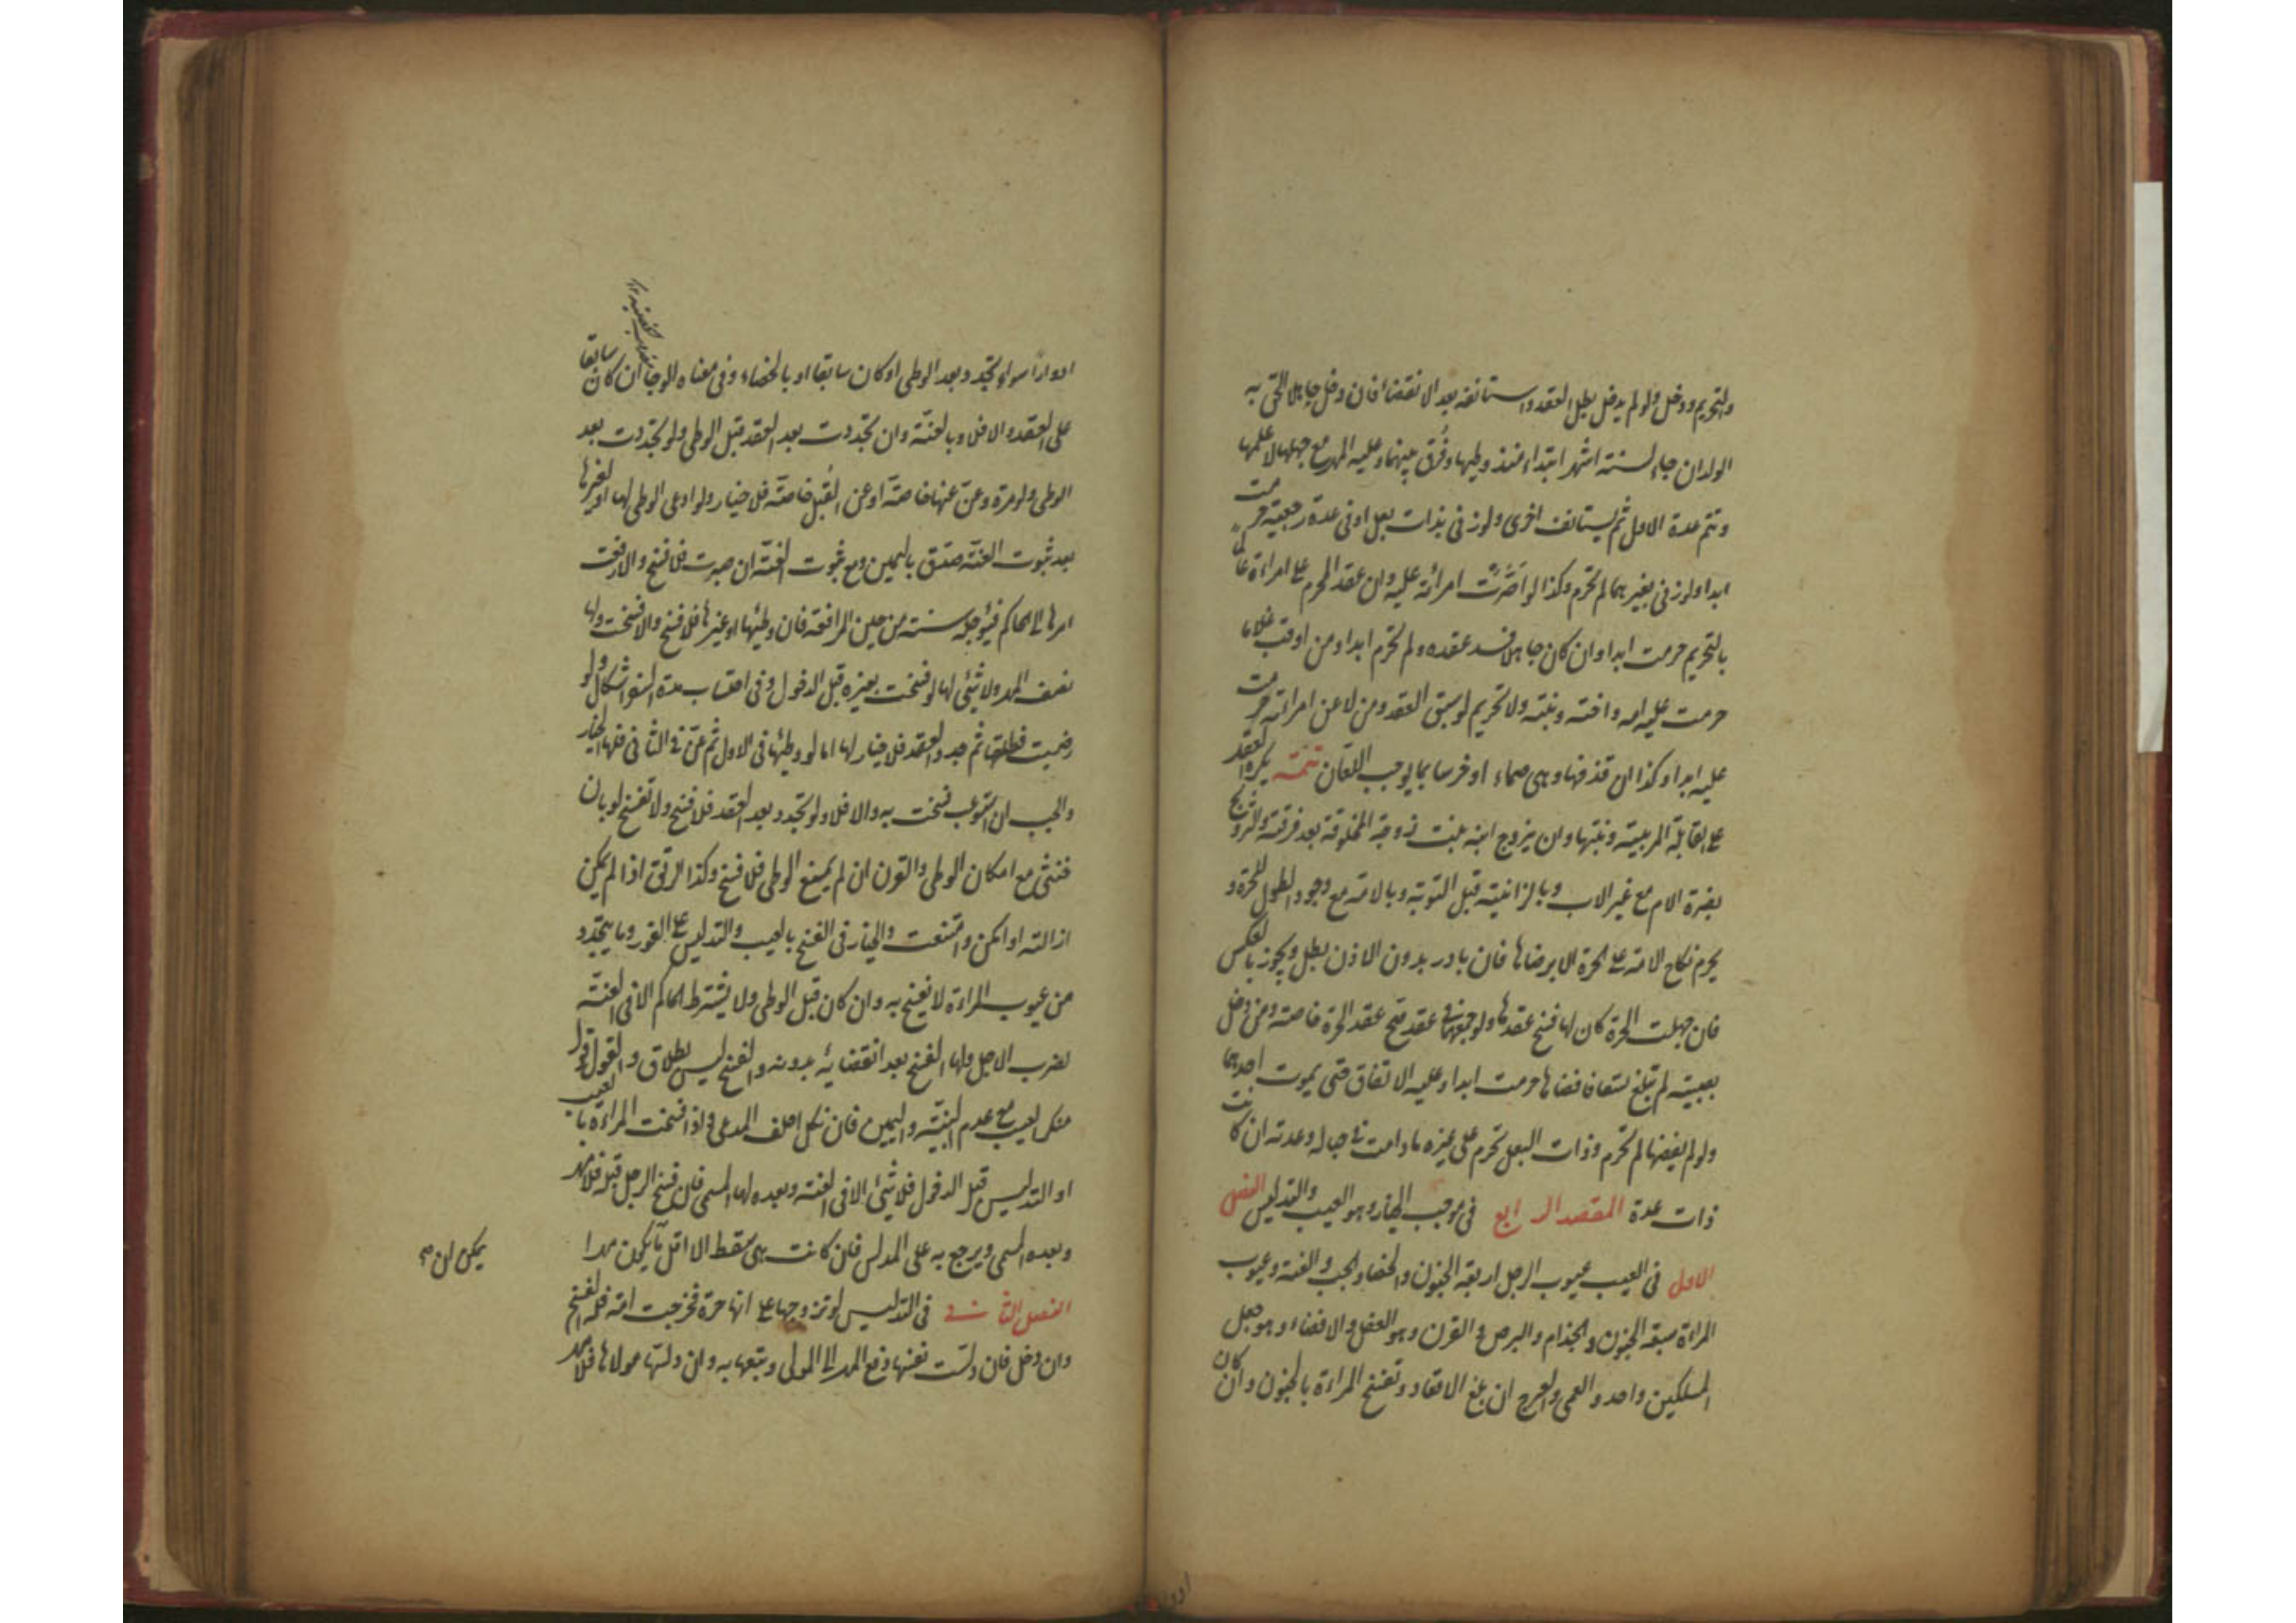 والتحريم ودخل ولو لم يدخل بطل العقد واستانفه بعد الانقضاء فان دخل جاهلا لحق به
الولد ان جاء لستة اشهر ابتداء منذ وطيها وفرق بينهما وعليه المهر مع جهلها لا علمها
وتتم عدة الاول ثم يستانف اخرى ولو زنى بذات بعل او فى عدة رجعية حرمت
ابدا ولو زنى بغيرهما لم تحرم وكذا لو اصرّت امرأته عليه وان عقد المحرم على امراءة عالما
بالتحريم حرمت ابدا وان كان جاهلا فسد عقده ولم تحرم ابدا ومن اوقب غلاما
حرمت عليه امه واخته وبنته ولا تحريم لو سبق العقد ومن لاعن امراته حرمت
عليه ابدا وكذا ان قذفها وهى صماء او خرسا بما يوجب اللعان تتمة يكره العقد
على القابلة المربية وبنتها وان يزوج ابنه بنت زوجة المخلوقة بعد فرقته والتزويج
بضرة الام مع غير الاب وبالزانية قبل التوبة وبالامة مع وجود الطول للحرة و
يحرم نكاح الامة على الحرة الا برضاها فان بادر بدون الاذن بطل ويجوز بالعكس
فان جهلت الحرة كان لها فسخ عقدها ولو جمعهما فى عقد صح عقد الحرة خاصة ومن دخل
بصبية لم تبلغ تسعا فافضاها حرمت ابدا وعليه الانفاق حتى يموت احدهما
ولو لم يفضها لم تحرم وذات البعل تحرم على غيره ما دامت فى حباله وعدته ان كانت
ذات عدة المقصد الرابع فى موجب الخيار وهو العيب والتدليس الفصل
الاول فى العيب عيوب الرجل اربعة الجنون والخصاء والجب والعنة وعيوب
المراءة سبعة الجنون والجذام والبرص والقرن وهو العفل والافضاء وهو جعل
المسلكين واحد والعمى والعرج ان بلغ الاقعاد وتفسخ المراءة بالجنون وان كان
ادوارا سواء تجدد بعد الوطى او كان سابقا او بالخصاء وفى معناه الوجأ ان كان سابقا
على العقد والا فلا وبالعنّة وان تجددت بعد العقد قبل الوطى ولو تجددت بعد
الوطى ولو مرة وعنّ عنها خاصّة او عن القُبل خاصّة فلا خيار ولو ادعى الوطى لها او لغيرها
بعد ثبوت العنّة صدق باليمين ومع ثبوت العنّة ان صبرت فلا فسخ والا رفعت
امرها الى الحاكم فيؤجله سنة من حين المرافعة فان وطئها او غيرها فلا فسخ والا فسخت ولها
نصف المهر ولا شئ لها لو فسخت بغيره قبل الدخول وفى احتساب مدة السفر اشكال ولو
رضيت فطلقها ثم جدد العقد فلا خيار لها اما لو وطئها فى الاول ثم عنّ فى الثانى فلها الخيار
والجب ان استوعب فسخت به والا فلا ولو تجدد بعد العقد فلا فسخ ولا تفسخ لو بان
خنثى مع امكان الوطى والقرن ان لم يمنع الوطى فلا فسخ وكذا الرتق اذا لم يمكن
ازالته او امكن وامتنعت والخيار فى الفسخ بالعيب والتدليس على الفور وما يتجدد
من عيوب المراءة لا يفسخ به وان كان قبل الوطى ولا يشترط الحاكم الا فى العنّة
لضرب الاجل ولها الفسخ بعد انقضائه بدونه والفسخ ليس بطلاق والقول قول
منكر العيب مع عدم البيّنة واليمين فان نكل احلف المدعى واذا فسخت المراءة بالعيب
او التدليس قبل الدخول فلا شئ الا فى العنة وبعده لها المسمى فان فسخ الرجل قبله فلا مهر
وبعده المسمى ويرجع به على المدلس فان كانت هى سقط الا اقل ما يكون مهرا
يمكن ان
الفصل الثانى فى التدليس لو تزوجها على انها حرة فخرجت امة فله الفسخ
وان دخل فان دلست نفسها دفع المهر الى المولى وتبعها به وان دلسها مولاها فلا مهر